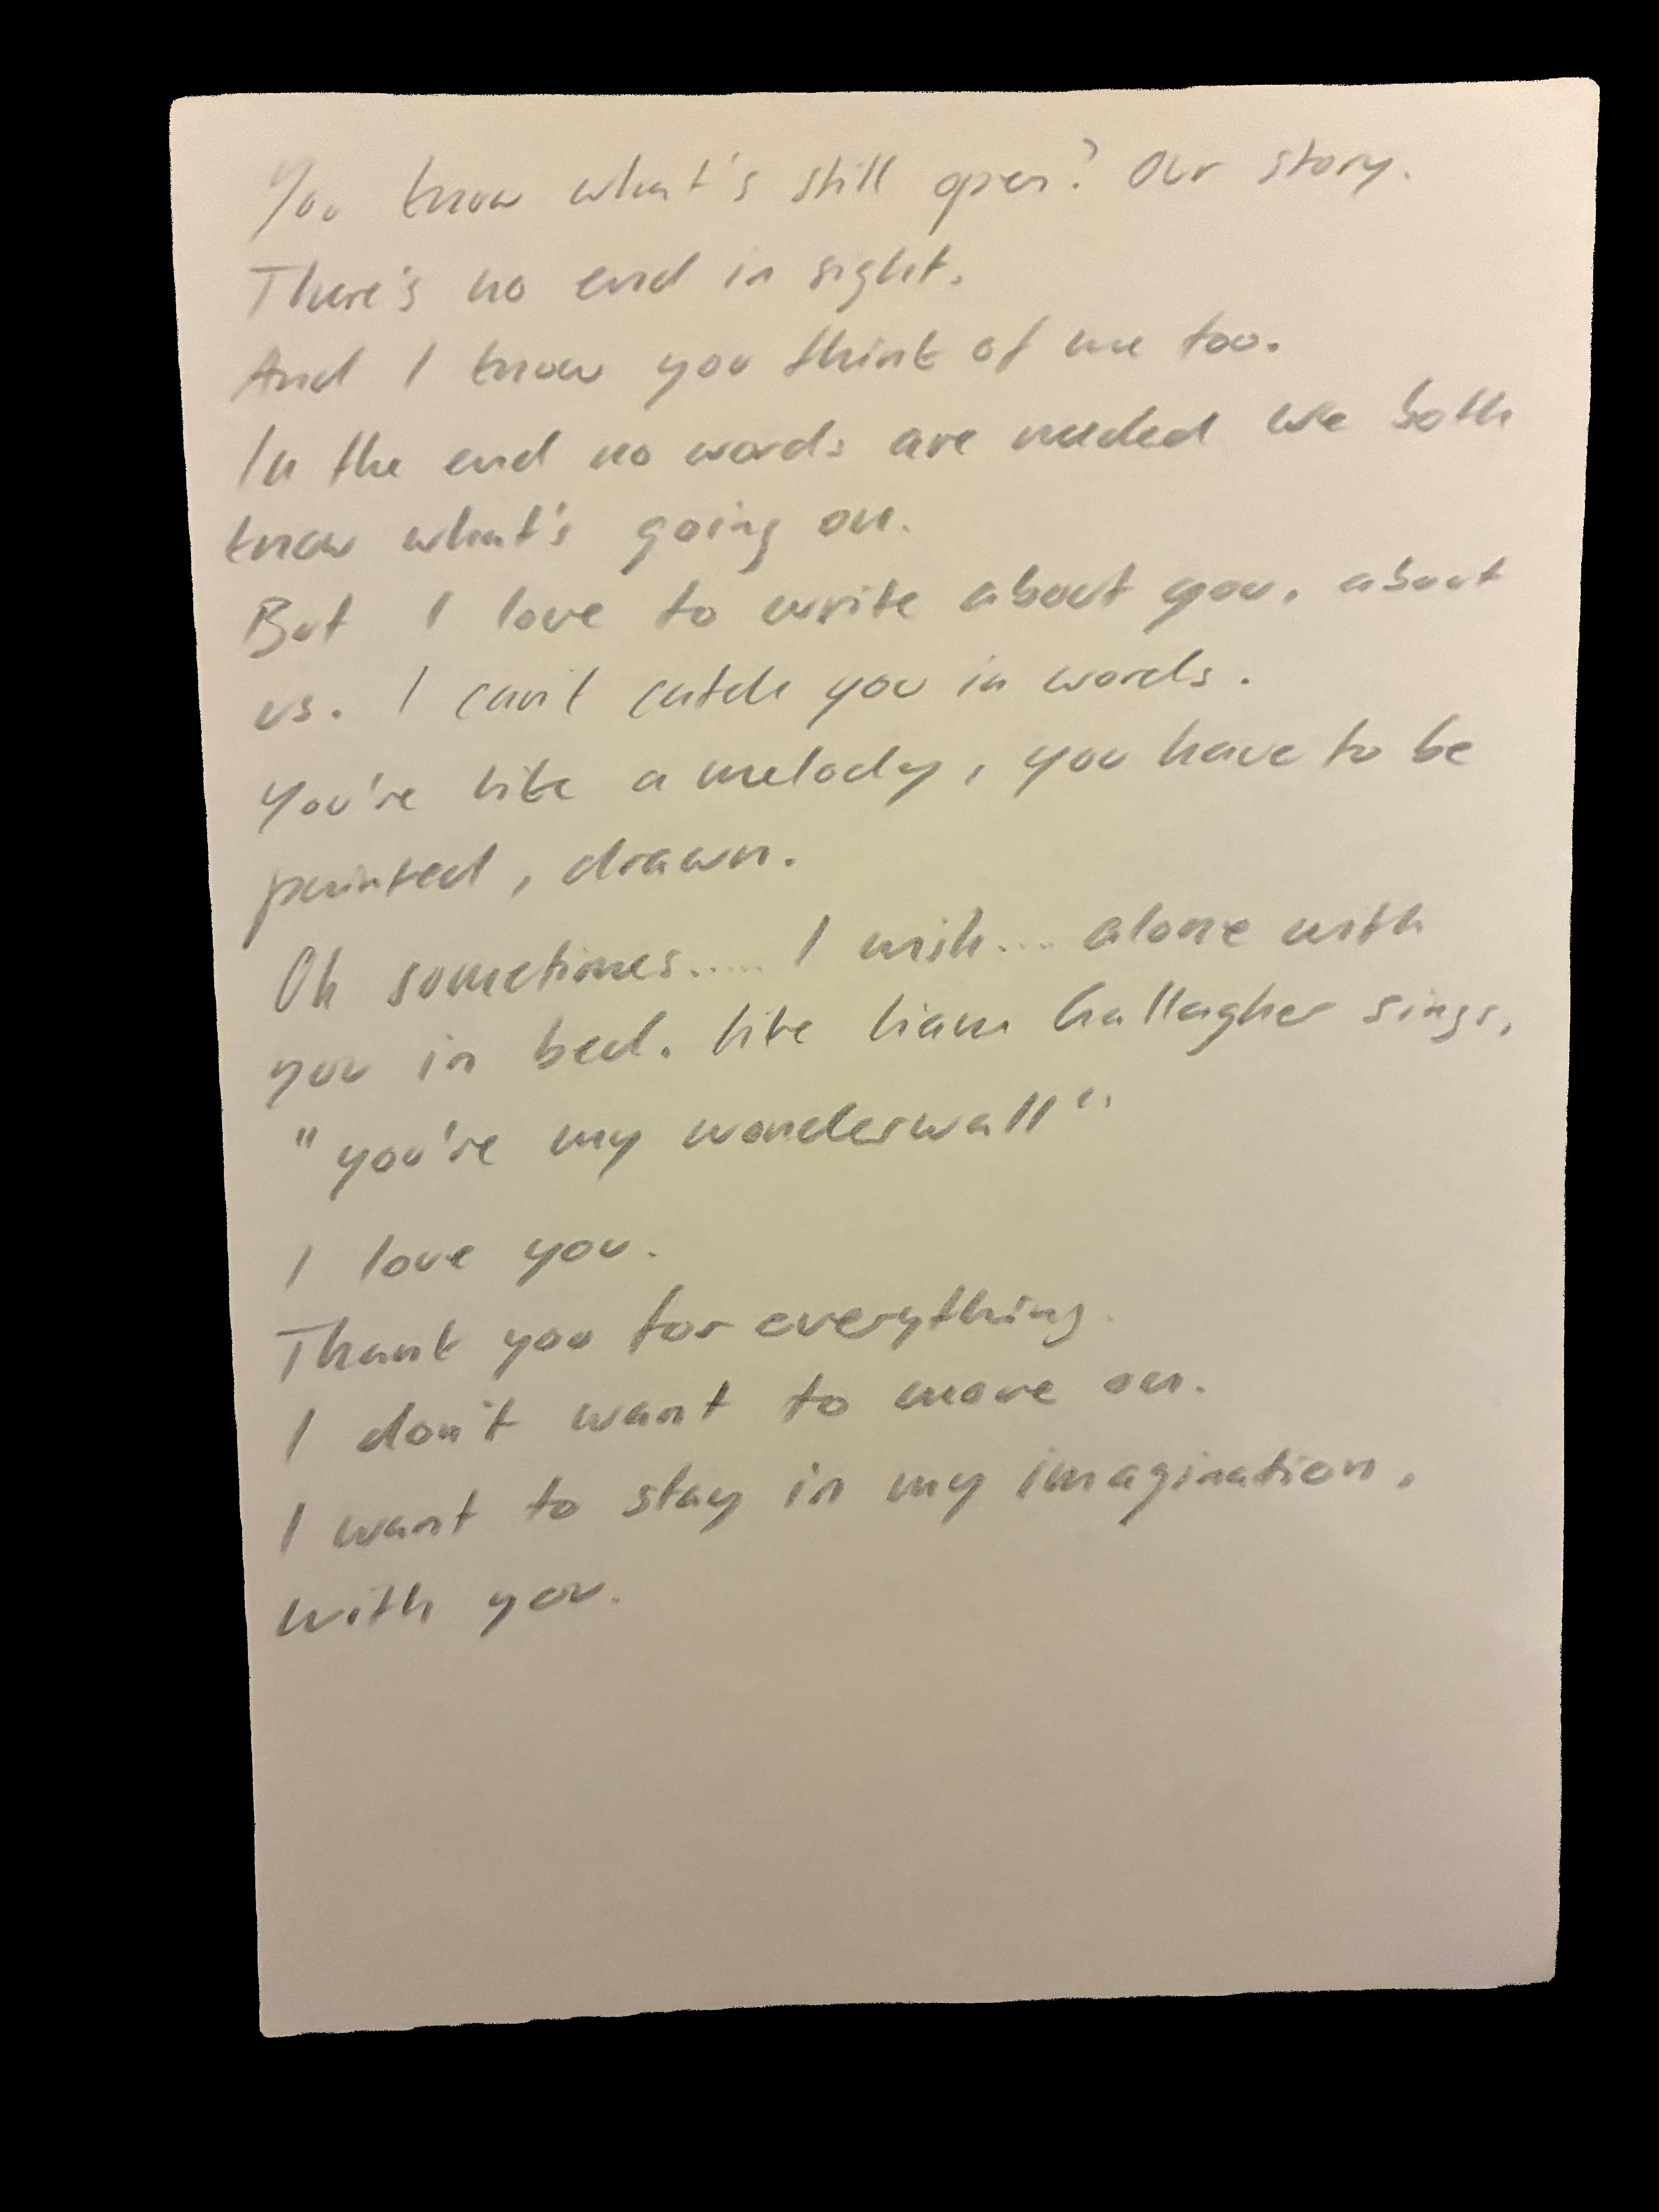 You know what's still open? Our story.
There's no end in sight.
And I know you think of me too.
In the end no words are needed we both
know what's going on.
But I love to write about you, about
us. I can't catch you in words.
You're like a melody, you have to be
painted, drawn.
Oh sometimes..... I wish.... alone with
you in bed. Like Liam Gallagher sings,
"you're my wonderwall"
I love you.
Thank you for everything.
I don't want to move on.
I want to stay in my imagination,
with you.